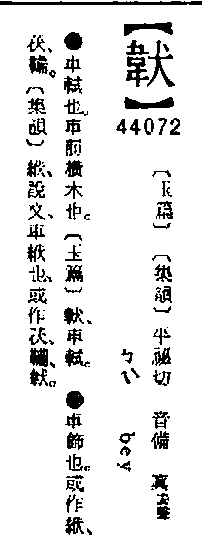 【】
44072
〔玉篇〕〔集韻〕平祕切 音備 寘去聲
ㄅㄟˋ bey
●車軾也。車前橫木也。〔玉篇〕、車軾。●車飾也。或作絥、
茯、鞴。〔集韻〕絥、說文、車絥也、或作茯、鞴、。